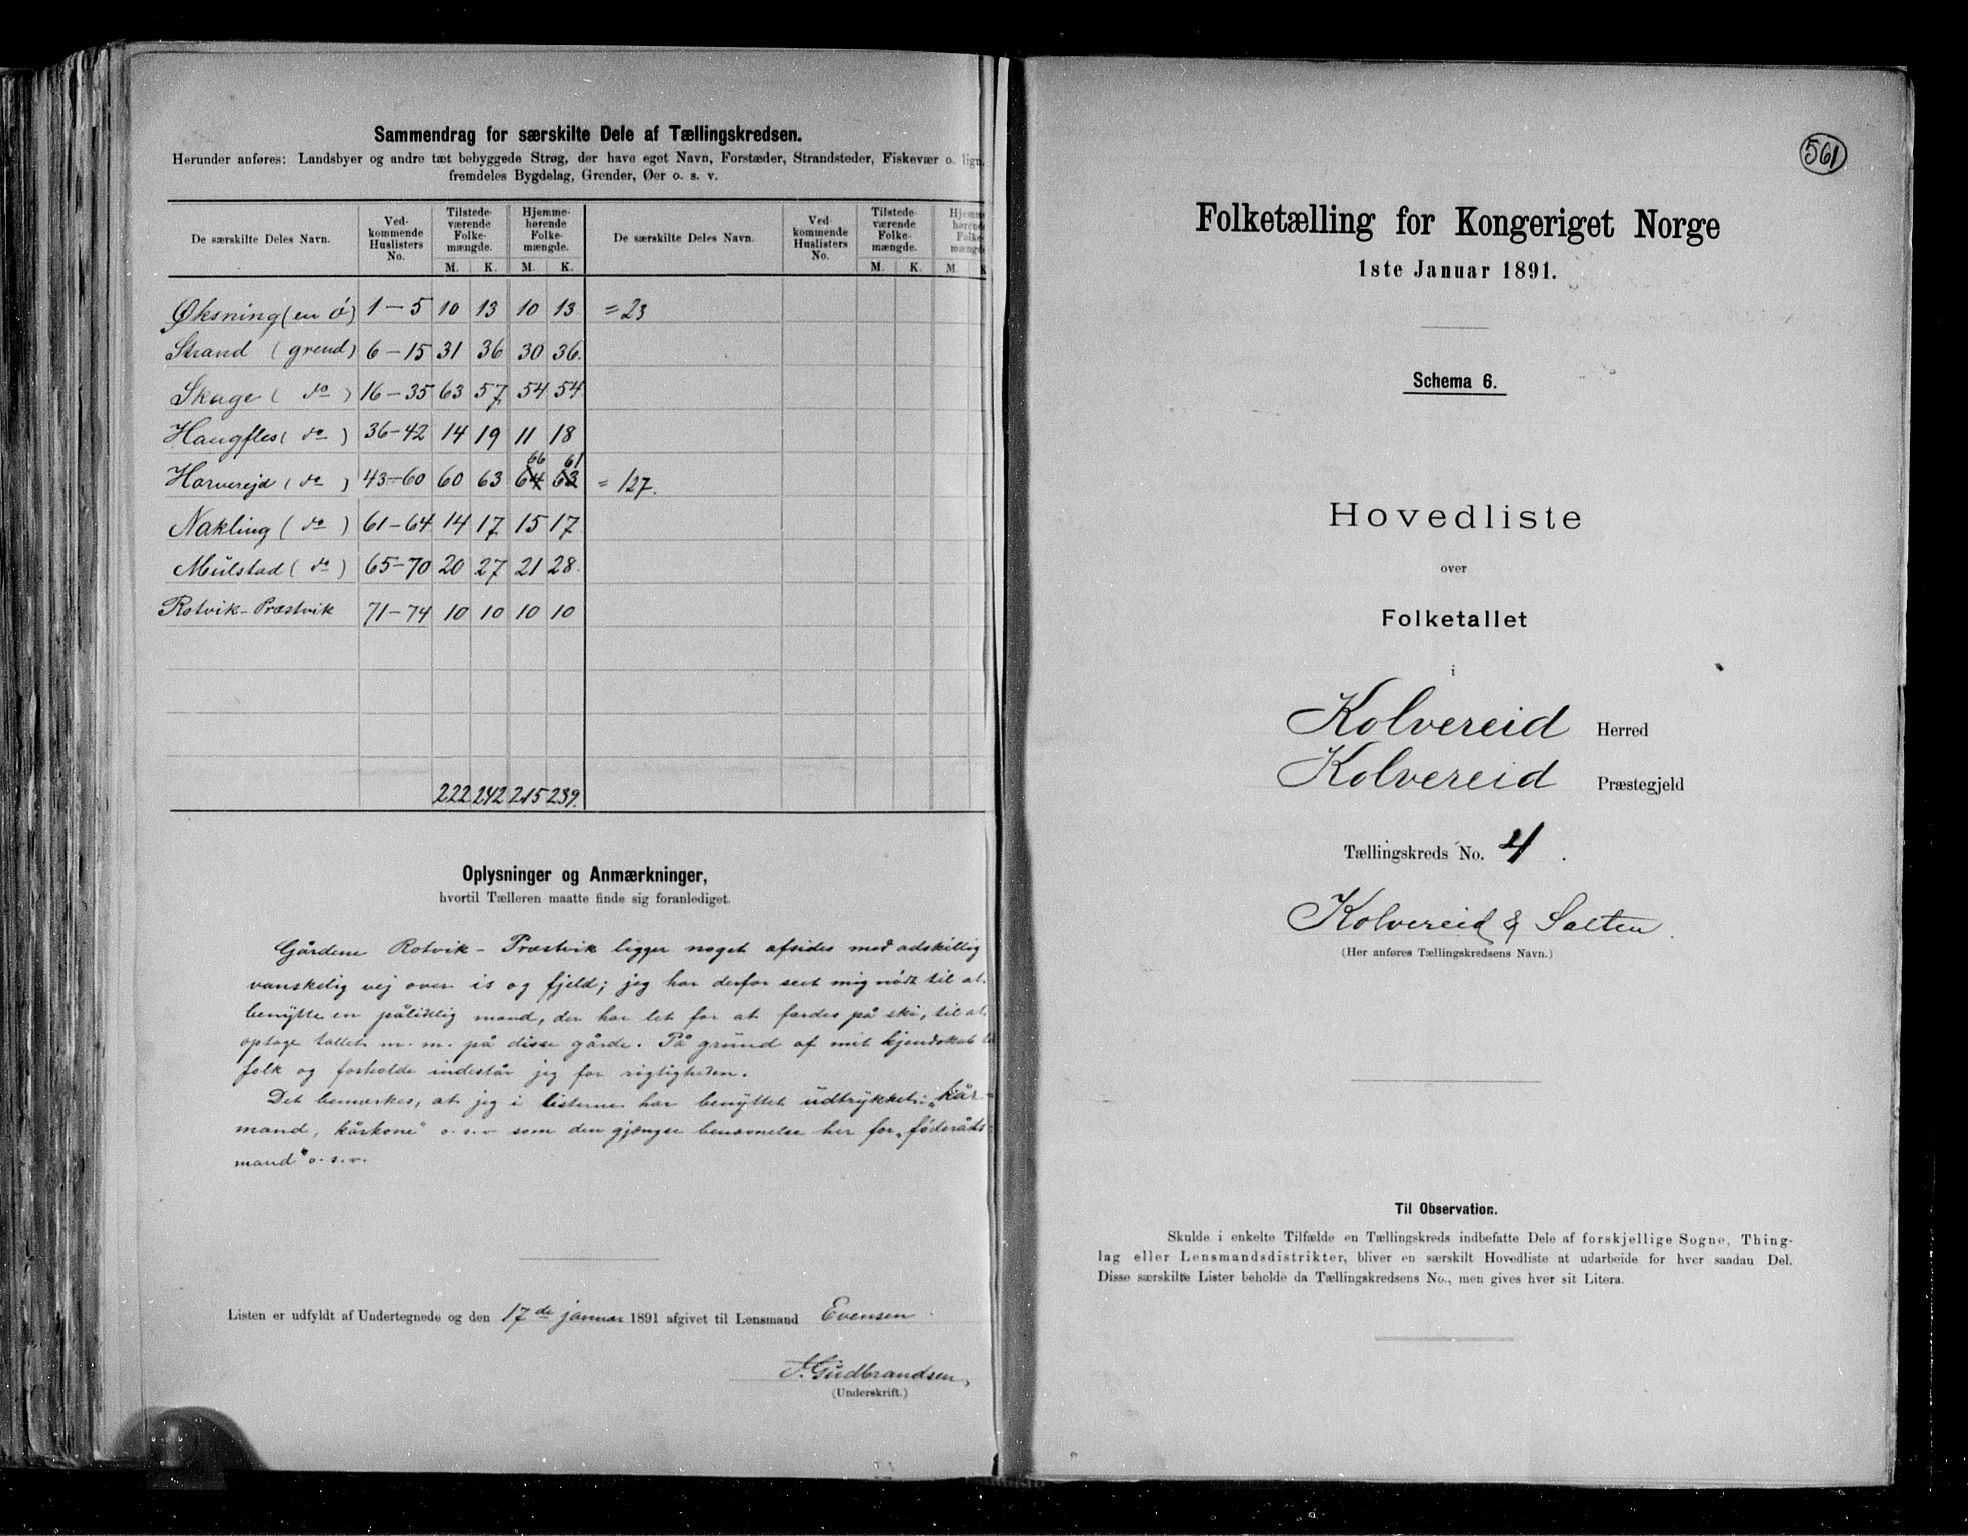 Sammendrag for særskilte Dele af Tællingskredsen.
Herunder anføres: Landsbyer og andre tæt bebyggede Strøg, der have eget Navn, Forstæder, Strandsteder, Fiskevær o. lign.
fremdeles Bygdelag, Grender, Øer o. s. v.
De særskilte Deles Navn. Ved-kommende Huslisters No. Tilstede-værende Folke-mængde. Hjemme-hørende Folke-mængde. De særskilte Deles Navn. Ved-kommende Huslisters No. Tilstede-værende Folke-mængde. Hjemme-hørende Folke-mængde
M. K. M. K. M. K. M K
Øksning (en ö) 1 - 5 10 13 10 13 = 23
Strand (grend) 6 - 15 31 36 30 36.
Skage ( do ) 16 - 35 63 57 54 54
Haugfles ( do ) 36 - 42 14 19 11 18
66 61
Horverejd ( do ) 43 - 60 60 63 64 63 = 127.
Nakling ( do ) 61 - 64 14 17 15 17
Mulstad ( do ) 65 - 70 20 27 21 28
Rotvik - Præstvik 71 - 74 10 10 10 10
222 242 215 239.
Oplysninger og Anmærkninger,
hvortil Tælleren maatte finde sig foranlediget.
Gårdene Rotvik - Præstvik ligger noget afsides med adskillig
vanskelig vej over is og fjeld; jeg har derfor seet mig nödt til at
benytte en pålidelig mand, der har let for at færdes på ski, til at
optage tallet m. m. på disse gårde. På grund af mit kjendskab
folk og forholde indestår jeg for rigtigheden.
Det bemærkes, at jeg i listerne har benyttet udtrykket: "kår-
mand, kårkone" o. s. v som den gjængse benævnelse her for "föderåds-
mand" o. s. v.
Listen er udfyldt af Undertegnede og den 17de januar 1891 afgivet til Lensmand Evensen
Gudbrandsen,
(Underskrift.)
561
Folketælling for Kongeriget Norge
1ste Januar 1891.
Schema 6.
Hovedliste
over
Folketallet
i
Kolvereid Herred
Kolvereid Præstegjeld
Tællingskreds No. 4.
Kolvereid & Salten.
(Her anføres Tællingskredsens Navn.)
Til Observation.
Skulde i enkelte Tilfælde en Tællingskreds indbefatte Dele af forskjellige Sogne, Thing-
lag eller Lensmandsdistrikter, bliver en særskilt Hovedliste at udarbeide for hver saadan Del.
Disse særskilte Lister beholde da Tællingskredsens No., men gives hver sit Litera.